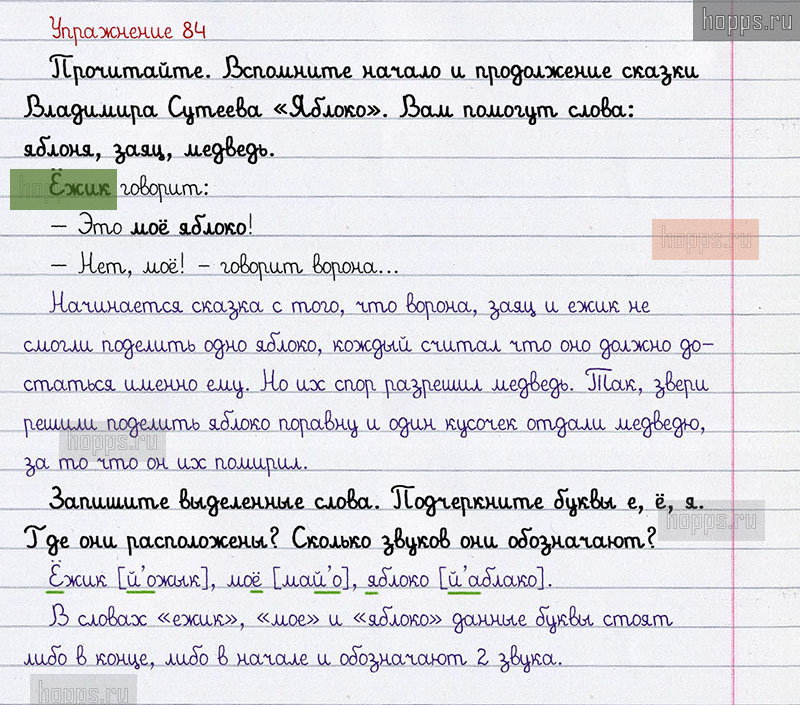 hopps.ru
Упражнение 84
Прочитайте. Вспомните начало и продолжение сказки
Владимира Сутеева «Яблоко». Вам помогут слова:
яблоня, заяц, медведь.
Ёжик говорит:
– Это моё яблоко!
hopps.ru
– Нет, моё! – говорит ворона...
Начинается сказка с того, что ворона, заяц и ежик не
смогли поделить одно яблоко, кождый считал что оно должно до-
статься именно ему. Но их спор разрешил медведь. Так, звери
решили поделить яблоко поравну и один кусочек отдали медведю,
hopps.ru
за то что он их помирил.
Запишите выделенные слова. Подчеркните буквы е, ё, я.
hopps.ru
Где они расположены? Сколько звуков они обозначают?
Ёжик [й'ожык], моё [май'о], яблоко [й'аблако].
В словах «ежик», «мое» и «яблоко» данные буквы стоят
либо в конце, либо в начале и обозначают 2 звука.
hopps.ru